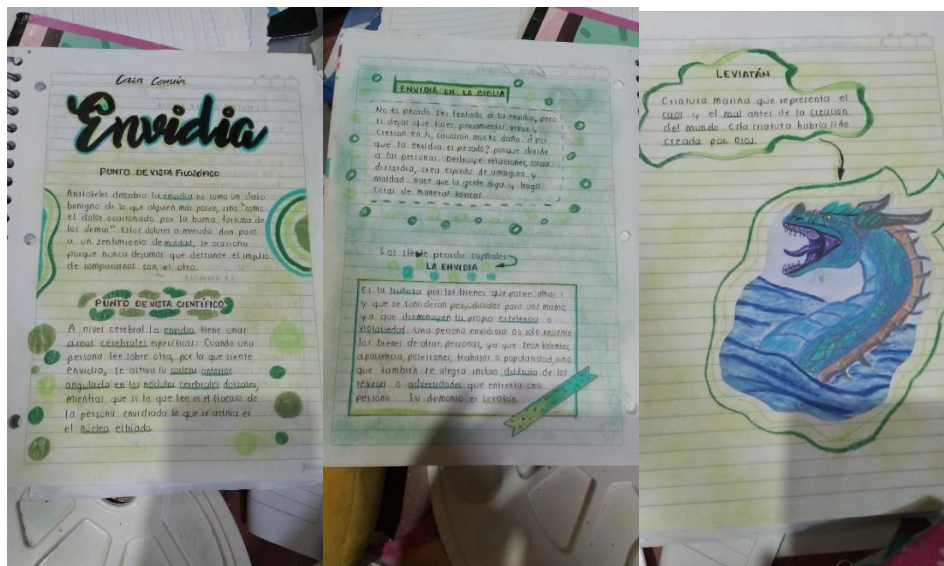 Casa Común
Envidia
PUNTO DE VISTA FILOSÓFICO
Aristóteles describió la envidia no como un deseo
benigno de lo que alguien más posee, sino "como
el dolor ocasionado por la buena fortuna de
los demás". Estos dolores a menudo dan paso
a un sentimiento de maldad, se ocasiona
porque nunca dejamos que descanse el impulso
de compararnos con el otro.
PUNTO DE VISTA CIENTÍFICO
A nivel cerebral la envidia tiene unas
áreas cerebrales específicas: Cuando una
persona lee sobre otra, por la que siente
envidia, se activa la corteza anterior
angulada en los nódulos cerebrales dorsales,
mientras que si lo que lee es el fracaso de
la persona envidiada lo que se activa es
el núcleo estriado.
ENVIDIA EN LA BIBLIA
No es pecado ser tentado a la envidia, pero
si dejas que tales pensamientos vivan y
crezcan en ti, causarán mucho daño. ¿Por
qué la envidia es pecado? porque divide
a las personas. Destruye relaciones, causa
discordia, crea espíritu de amargura y
maldad. Hace que la gente diga y haga
cosas de maneras tóxicas.
Los siete pecados capitales
LA ENVIDIA
Es la tristeza por los bienes que posee otro
y que se consideran perjudiciales para uno mismo,
ya que disminuyen tu propia excelencia o
notoriedad. Una persona envidiosa no solo resiente
los bienes de otras personas, ya que sean talentos,
apariencia, posesiones, trabajos o popularidad, sino
que también se alegra incluso disfruta de los
reveses o adversidades que enfrenta una
persona. Tu demonio es Leviatán.
LEVIATÁN
Criatura marina que representa el
caos y el mal antes de la creación
del mundo. Esta criatura habría sido
creada por Dios.